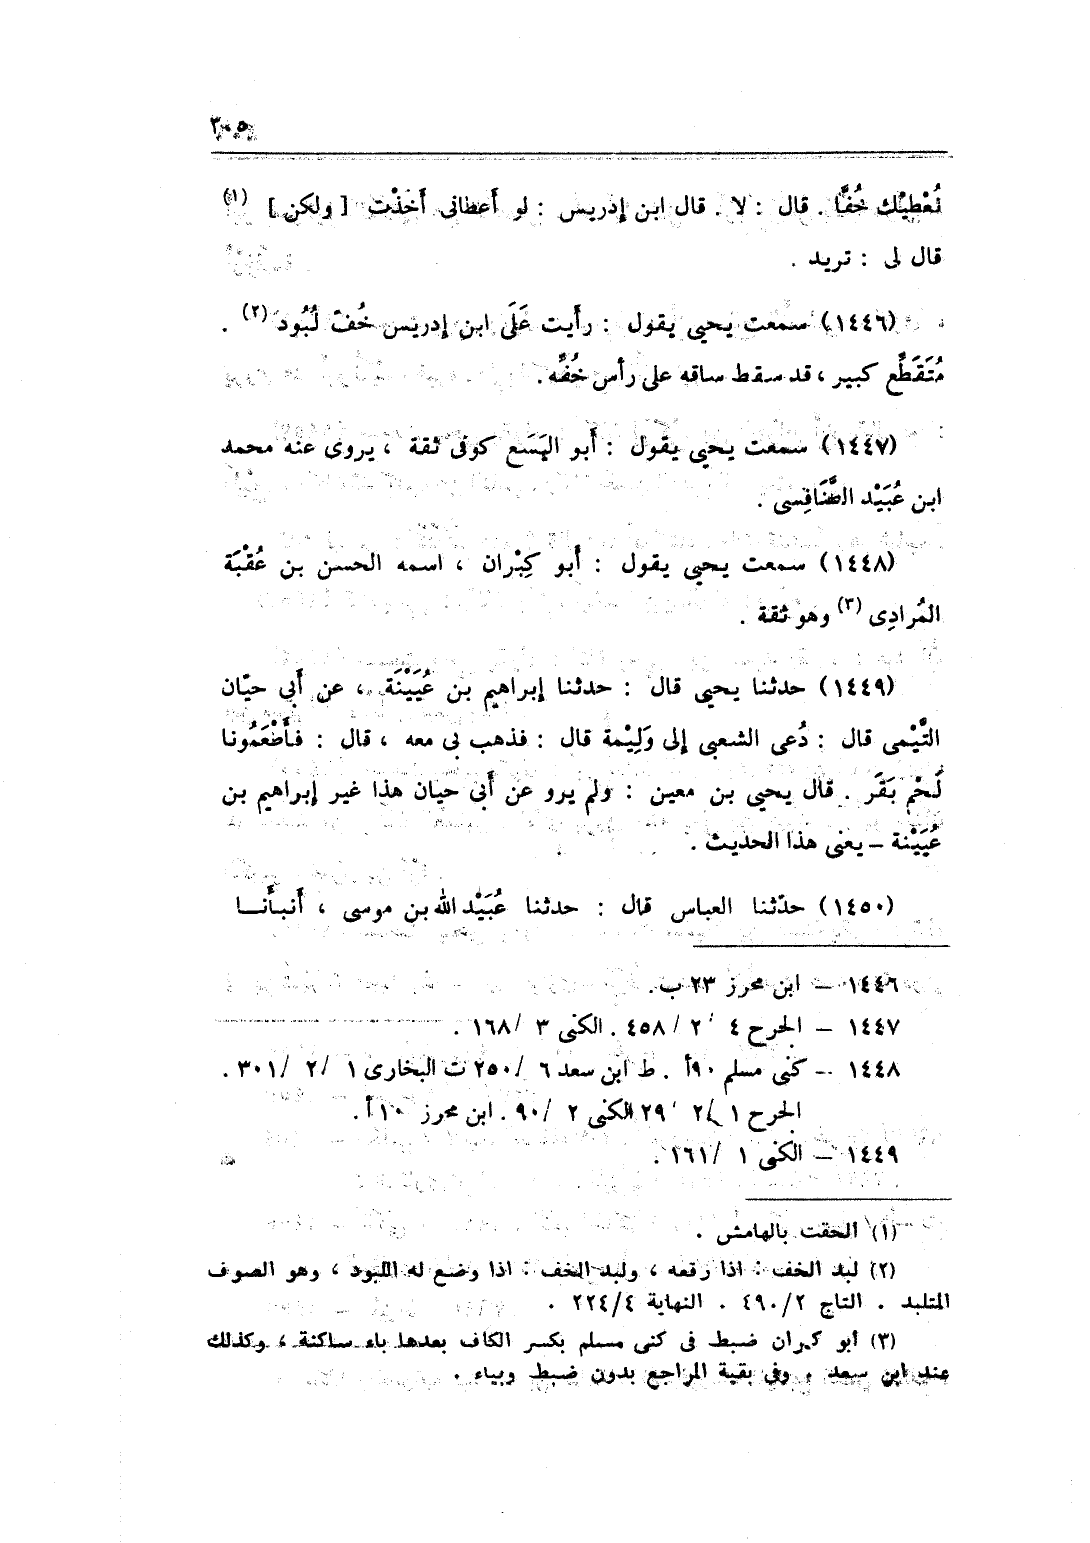 ٣٠٥
نُعْطِيْك خُفًّا . قال : لا . قال ابن إدريس : لو أَعطانى أَخذْت [ ولكن ] (١)
قال لى : تريد .
(١٤٤٦) سمعت يحيى يقول : رأَيت عَلَى ابن إدريس خُفّ لُبُود (٢) .
مُتَقَطِّع كبير ، قد سقط ساقه على رأس خُفِّه .
(١٤٤٧) سمعت يحيى يقول : أَبو اليَسَع كوفى ثقة ، يروى عنه محمد
ابن عُبَيْد الطَّنَافِسى .
(١٤٤٨) سمعت يحيى يقول : أَبو كِبْران ، اسمه الحسن بن عُقْبَة
المُرادِى (٣) وهو ثقة .
(١٤٤٩) حدثنا يحيى قال : حدثنا إبراهيم بن عُيَيْنَة ، عن أَبي حيّان
التَّيْمى قال : دُعى الشعبى إلى وَلِيْمة قال : فذهب بى معه ، قال : فأَطْعَمُونا
لَحْم بَقَر . قال يحيى بن معين : ولم يرو عن أَبي حيان هذا غير إبراهيم بن
عُيَيْنة – يعنى هذا الحديث .
(١٤٥٠) حدّثنا العباس قال : حدثنا عُبَيْد الله بن موسى ، أَنبأَنا
١٤٤٦ – ابن محرز ٢٣ ب .
١٤٤٧ – الجرح ٤ / ٢ / ٤٥٨ . الكنى ٣ / ١٦٨ .
١٤٤٨ – كنى مسلم ٩٠أ . ط ابن سعد ٦ / ٢٥٠ ت البخارى ١ / ٢ / ٣٠١ .
الجرح ١ / ٢ / ٢٩ الكنى ٢ / ٩٠ . ابن محرز ١٠أ .
١٤٤٩ – الكنى ١ / ١٦١ .
(١) الحقت بالهامش .
(٢) لبد الخف : اذا رقعه ، ولبد الخف : اذا وضع له اللبود ، وهو الصوف
المتلبد . التاج ٤٩٠/٢ . النهاية ٢٢٤/٤ .
(٣) أبو كبران ضبط فى كنى مسلم بكسر الكاف بعدها باء ساكنة ، وكذلك
عند ابن سعد ، وفى بقية المراجع بدون ضبط وبياء .